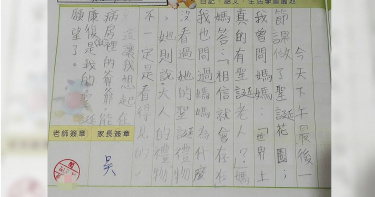 今天下午最後一
節課做了聖誕花圈，
我曾問媽媽：「世界上
真的有聖誕老人？」媽
媽答：「相信就會存在」
我也問過媽媽為什麼
沒看過她的聖誕禮物
，她則說大人的禮物
不一定是看得見的！
這讓我想起住在
病房裡的爺爺能
康復是我的聖誕
願望了。
老師簽章
家長簽章
吳